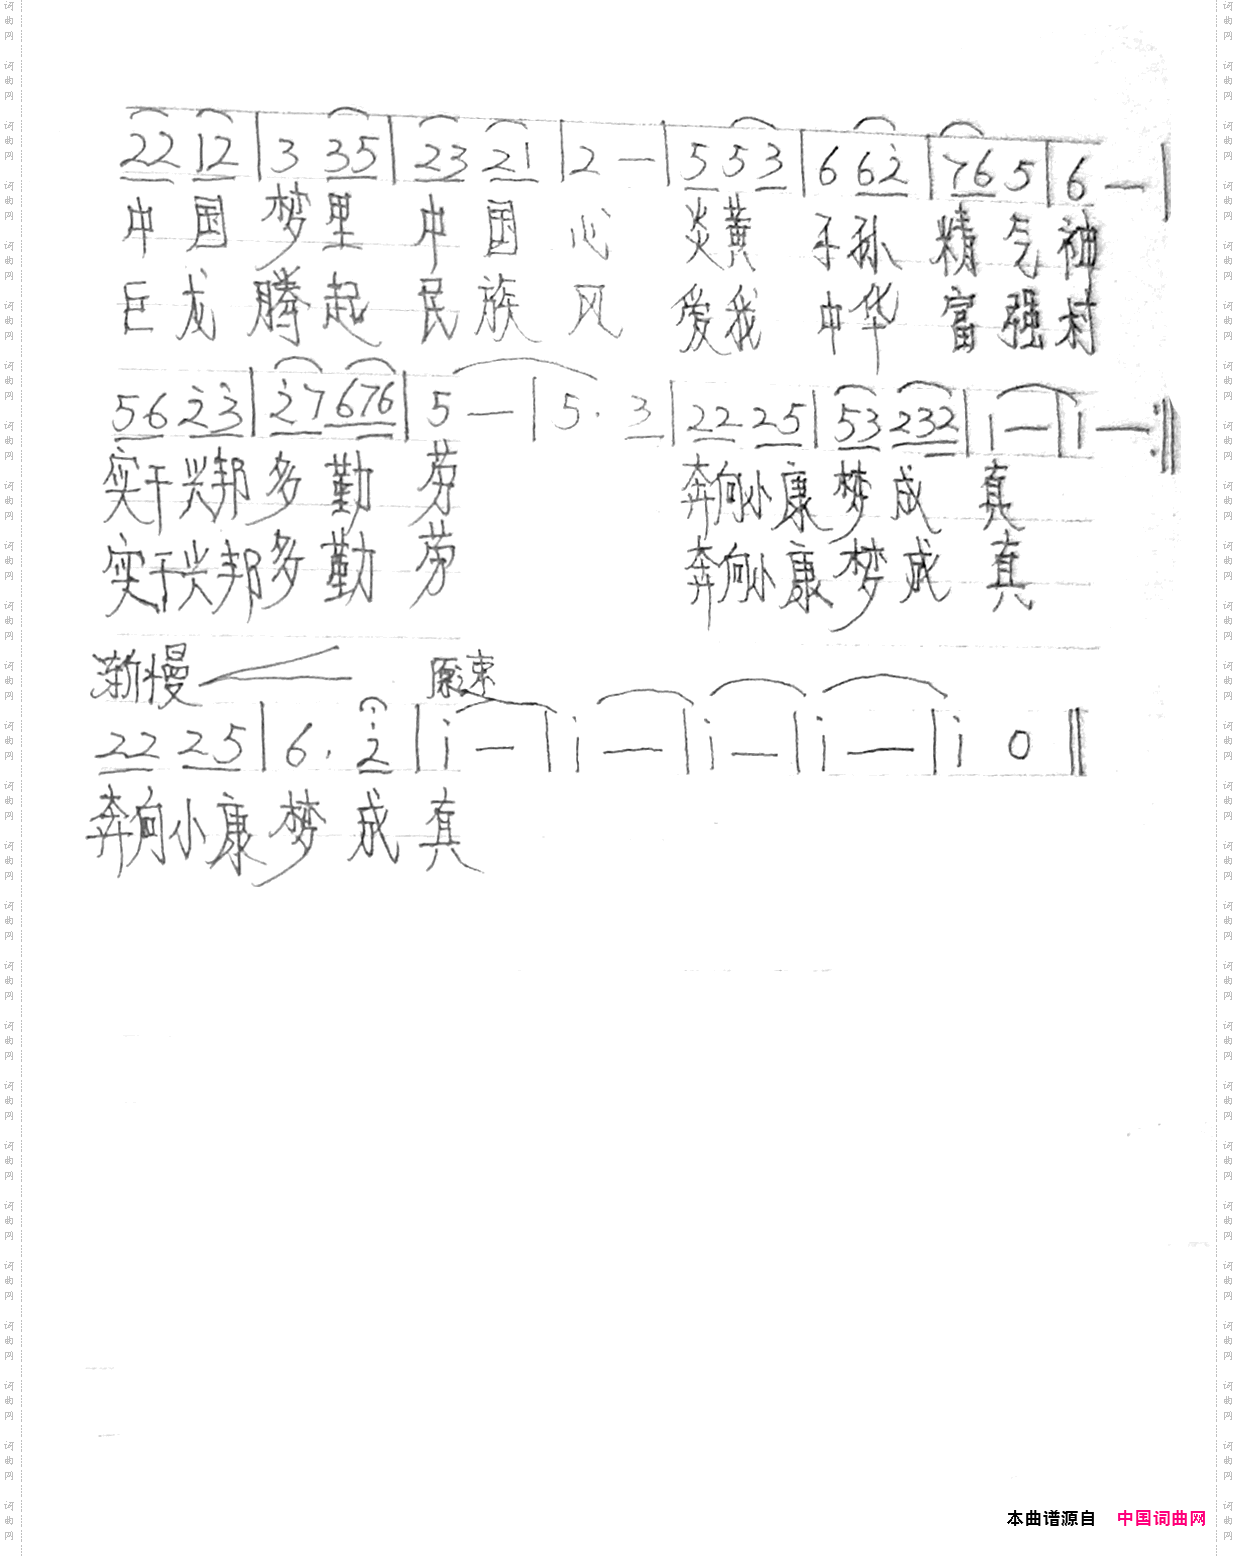 22 12 | 3 35 | 23 21 | 2 — | 5 53 | 6 62̇ | 76 5 | 6 — |
中国梦里中国心 炎黄子孙精气神
巨龙腾起民族风 爱我中华富强村
56 2̇3̇ | 2̇7 676 | 5 — | 5. 3 | 22 25 | 53 232 | 1 — | 1 — :‖
实干兴邦多勤劳 奔向小康梦成真
实干兴邦多勤劳 奔向小康梦成真
渐慢 原速
22 25 | 6. 2̇ | 1̇ — | 1̇ — | 1̇ — | 1̇ — | 1̇ 0 ‖
奔向小康梦成真
本曲谱源自 中国词曲网